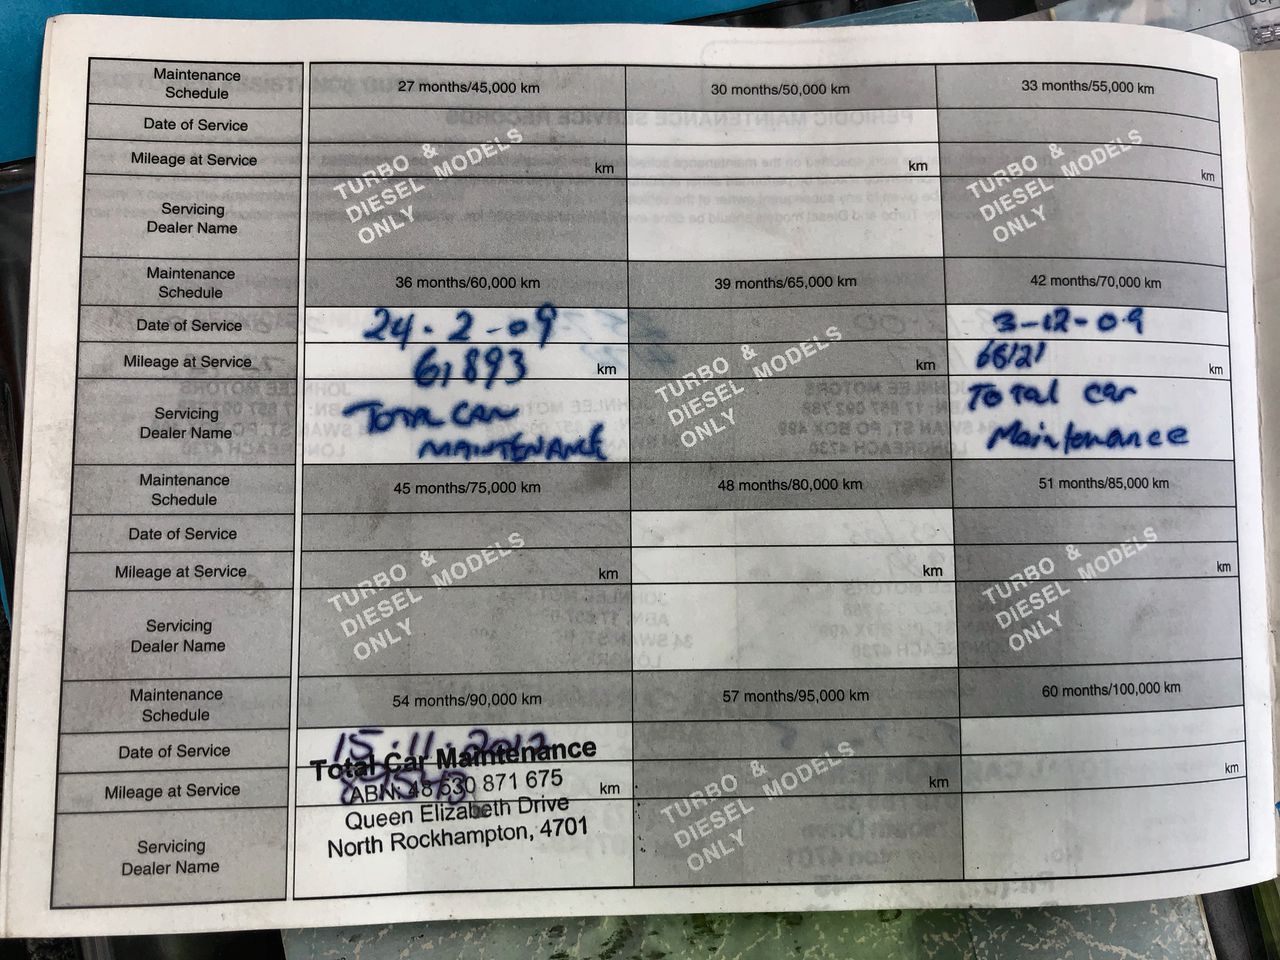 Maintenance
Schedule
27 months/45,000 km
30 months/50,000 km
33 months/55,000 km
Date of Service
Mileage at Service
km
km
km
Servicing
Dealer Name
TURBO &
DIESEL MODELS
ONLY
TURBO &
DIESEL MODELS
ONLY
Maintenance
Schedule
36 months/60,000 km
39 months/65,000 km
42 months/70,000 km
Date of Service
24-2-09
3-12-09
Mileage at Service
61893 km
km
km
Servicing
Dealer Name
TOTAL CAR
MAINTENANCE
TURBO &
DIESEL MODELS
ONLY
Total car
Maintenance
Maintenance
Schedule
45 months/75,000 km
48 months/80,000 km
51 months/85,000 km
Date of Service
Mileage at Service
km
km
km
Servicing
Dealer Name
TURBO &
DIESEL MODELS
ONLY
TURBO &
DIESEL MODELS
ONLY
Maintenance
Schedule
54 months/90,000 km
57 months/95,000 km
60 months/100,000 km
Date of Service
15.11.2012
Mileage at Service
km
km
km
Servicing
Dealer Name
Total Car Maintenance
ABN: 48 630 871 675
Queen Elizabeth Drive
North Rockhampton, 4701
TURBO &
DIESEL MODELS
ONLY